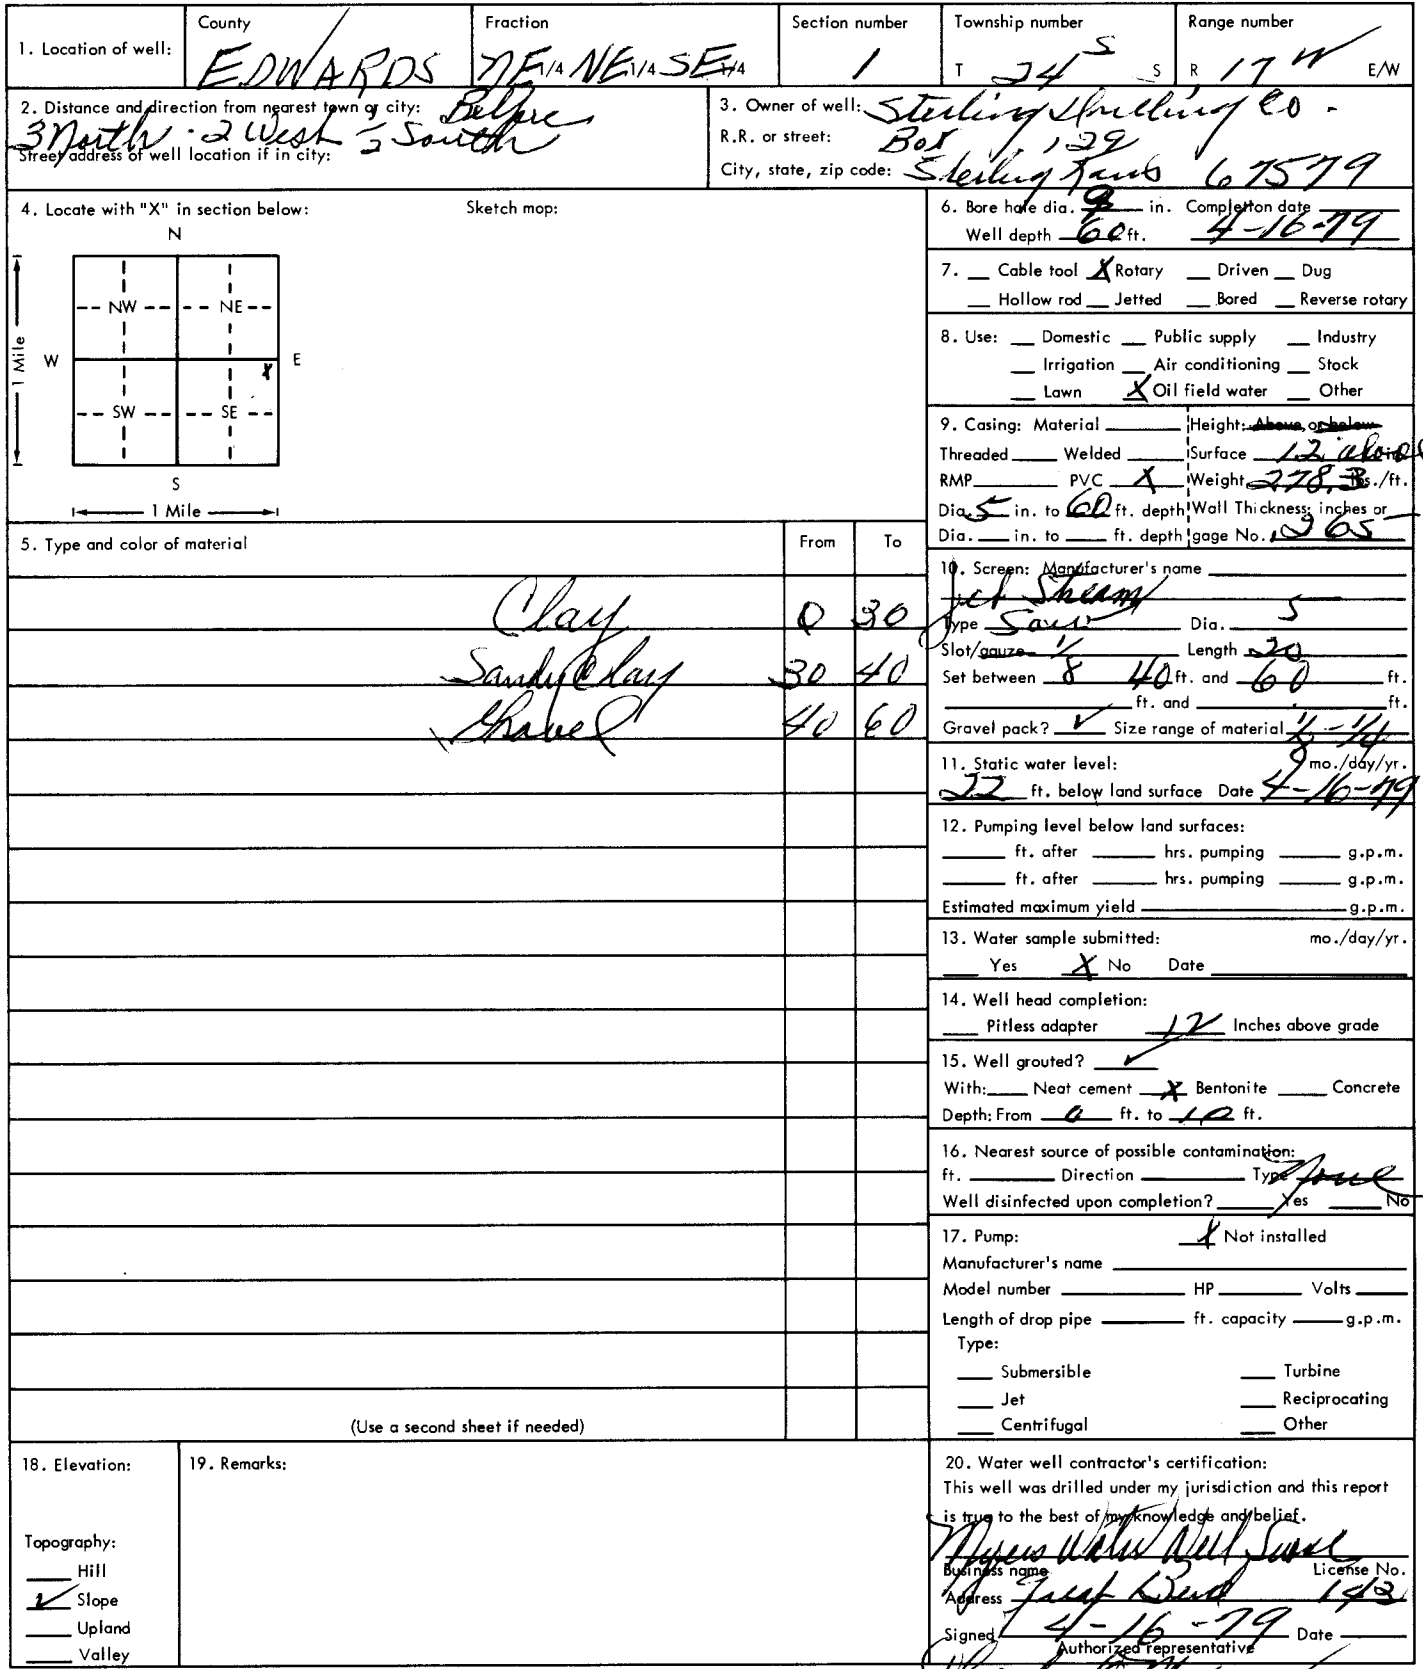 1. Location of well: County EDWARDS Fraction NE 1/4 NE 1/4 SE 1/4 Section number 1 Township number T 24 S S Range number R 17 W E/W
2. Distance and direction from nearest town or city: Belpre
3 North - 2 West 1/2 South
Street address of well location if in city:
3. Owner of well: Sterling Drilling Co.
R.R. or street: Box 129
City, state, zip code: Sterling Kans 67579
4. Locate with "X" in section below: Sketch map:
N
NW NE
W E
X
SW SE
S
1 Mile
1 Mile
5. Type and color of material From To
Clay 0 30
Sandy Clay 30 40
Gravel 40 60
(Use a second sheet if needed)
6. Bore hole dia. 9 in. Completion date
Well depth 60 ft. 4-16-79
7. Cable tool X Rotary Driven Dug
Hollow rod Jetted Bored Reverse rotary
8. Use: Domestic Public supply Industry
Irrigation Air conditioning Stock
Lawn X Oil field water Other
9. Casing: Material Height: Above or below
Threaded Welded Surface 12 above
RMP PVC X Weight 278.3 lbs./ft.
Dia. 5 in. to 60 ft. depth Wall Thickness: inches or
Dia. in. to ft. depth gage No. .265
10. Screen: Manufacturer's name
Jet Stream
Type Saw Dia. 5
Slot/gauze 1/8 Length 20
Set between 40 ft. and 60 ft.
ft. and ft.
Gravel pack? ✓ Size range of material 1/8 - 1/4
11. Static water level: mo./day/yr.
22 ft. below land surface Date 4-16-79
12. Pumping level below land surfaces:
ft. after hrs. pumping g.p.m.
ft. after hrs. pumping g.p.m.
Estimated maximum yield g.p.m.
13. Water sample submitted: mo./day/yr.
Yes X No Date
14. Well head completion:
Pitless adapter 12 Inches above grade
15. Well grouted? ✓
With: Neat cement X Bentonite Concrete
Depth: From 0 ft. to 10 ft.
16. Nearest source of possible contamination:
ft. Direction Type None
Well disinfected upon completion? Yes No
17. Pump: X Not installed
Manufacturer's name
Model number HP Volts
Length of drop pipe ft. capacity g.p.m.
Type:
Submersible Turbine
Jet Reciprocating
Centrifugal Other
18. Elevation:
Topography:
Hill
✓ Slope
Upland
Valley
19. Remarks:
20. Water well contractor's certification:
This well was drilled under my jurisdiction and this report
is true to the best of my knowledge and belief.
Myers Water Well
Business name License No.
Address Great Bend 143
Signed 4-16-79 Date
Authorized representative